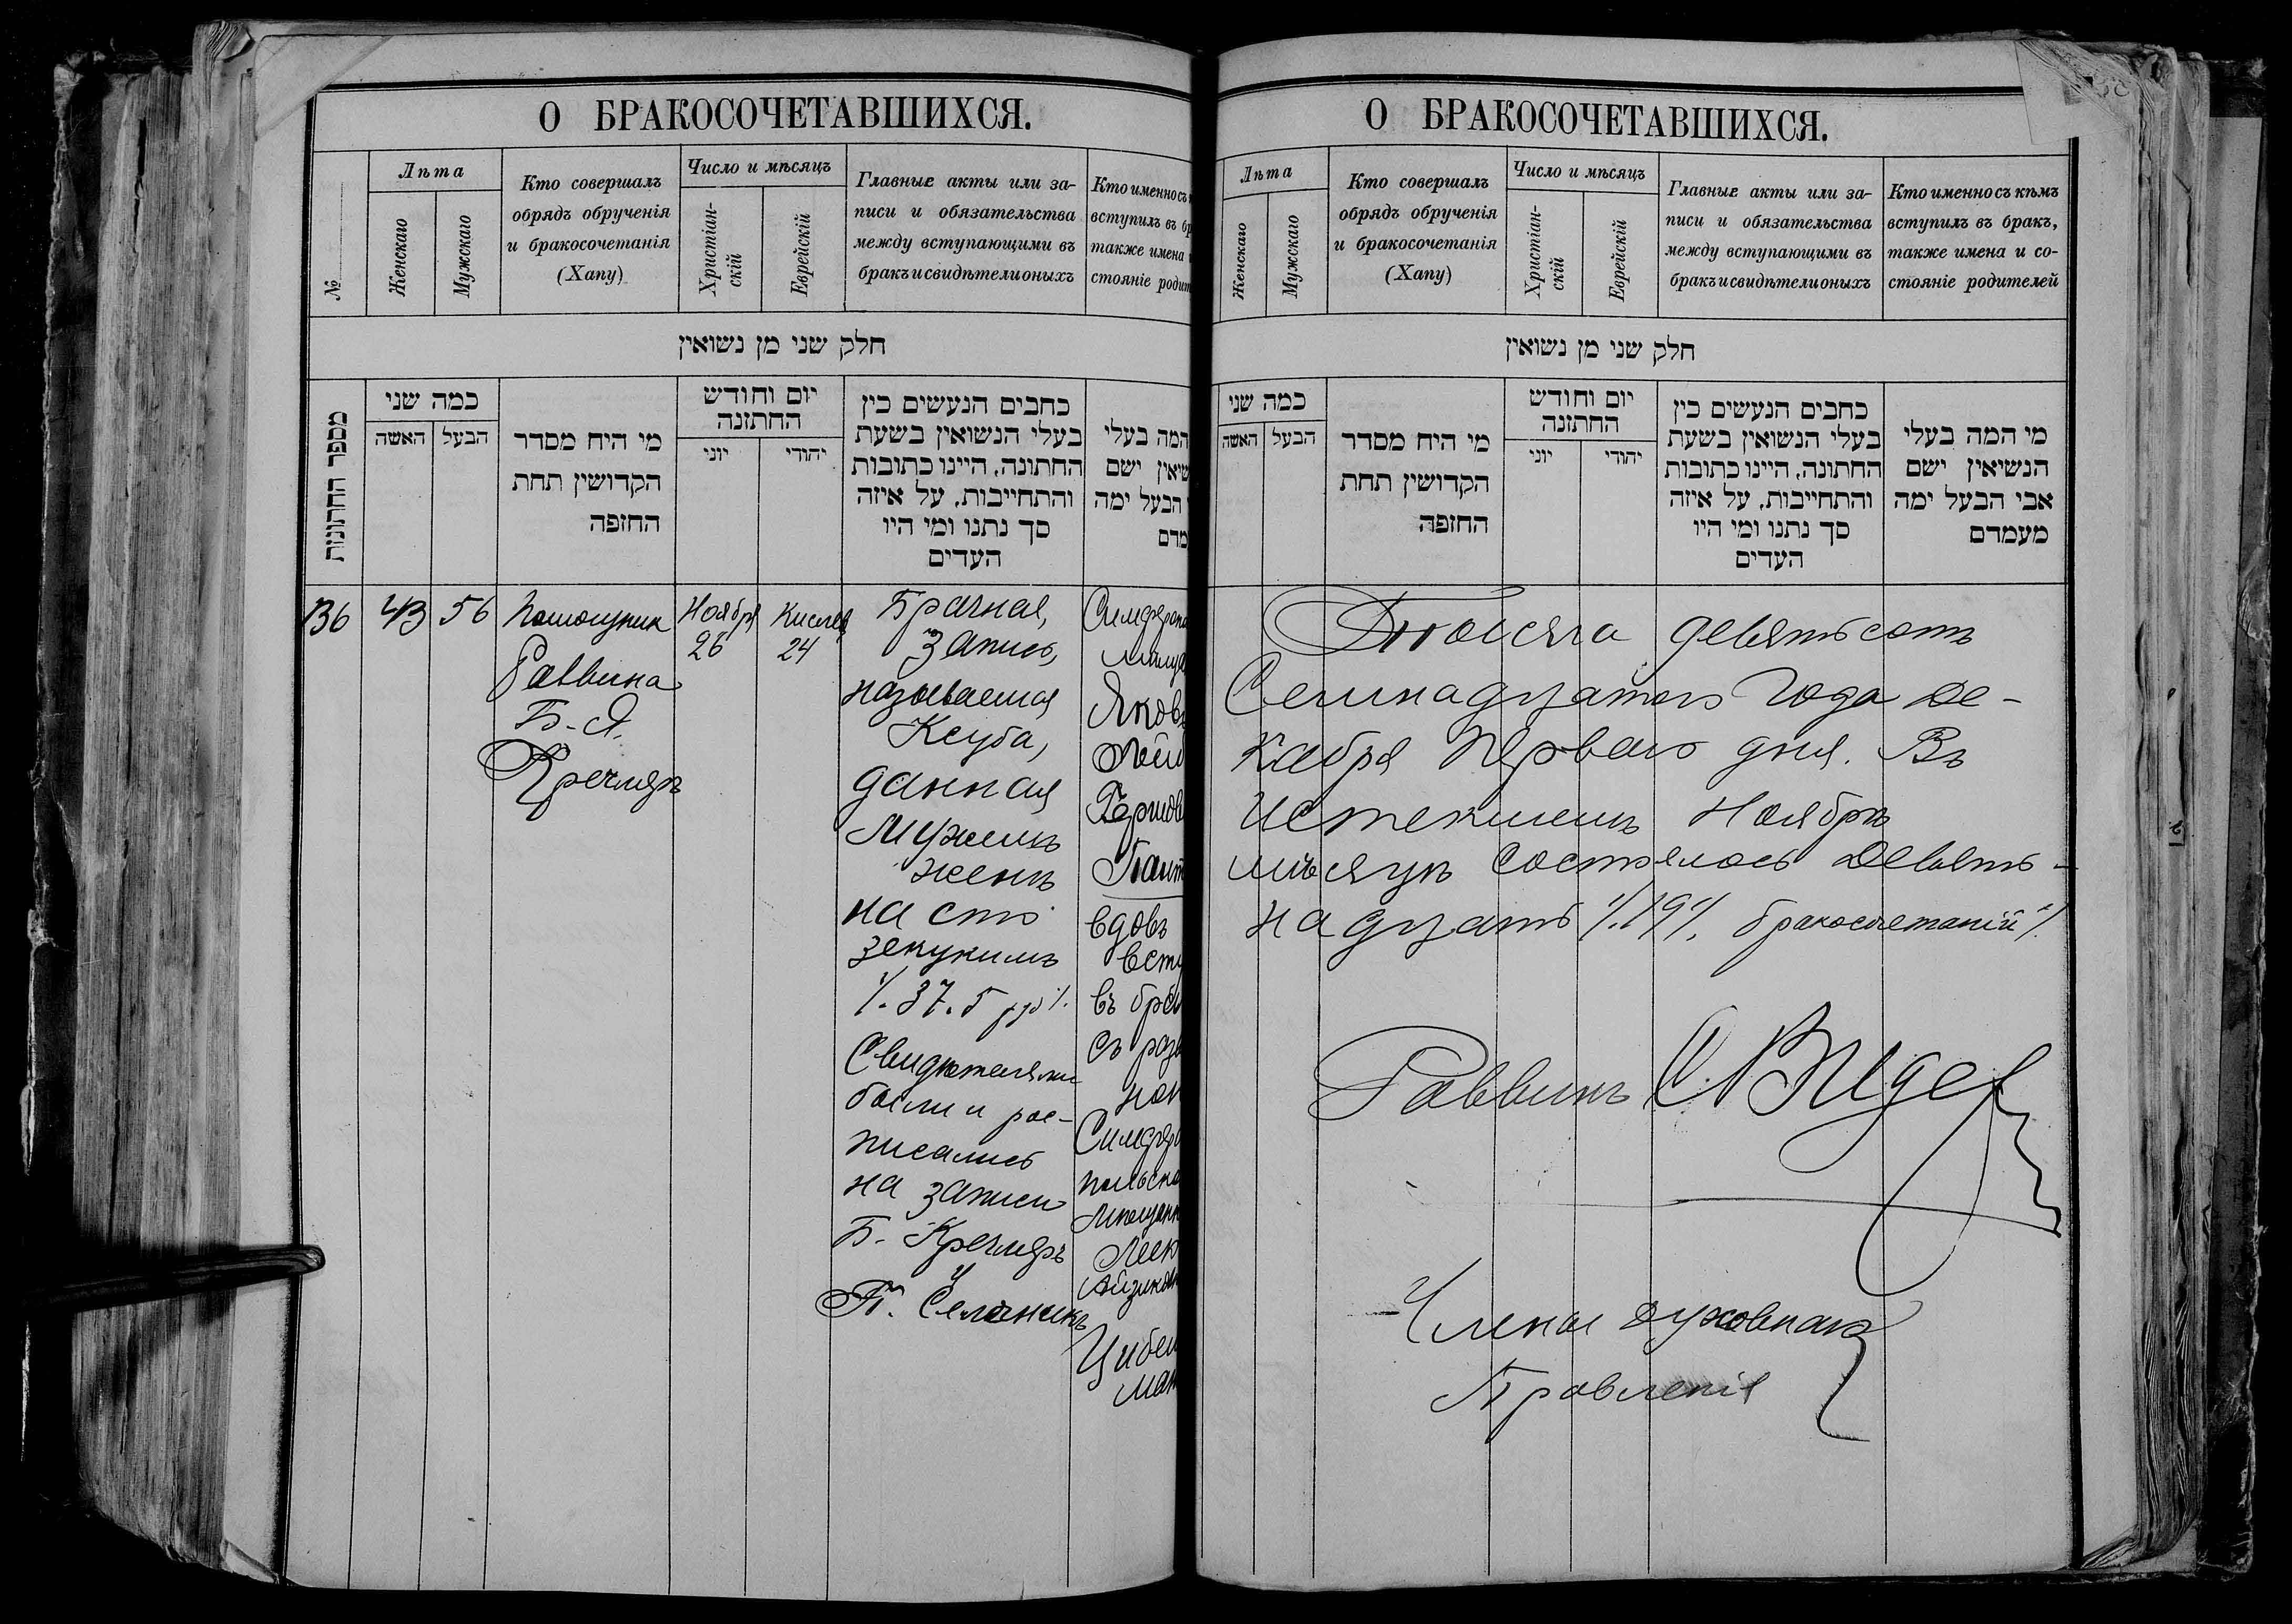 О БРАКОСОЧЕТАВШИХСЯ.
№
Лѣта
Женскаго
Мужскаго
Кто совершалъ
обрядъ обрученія
и бракосочетанія
(Хапу)
Число и мѣсяцъ
Христіан-
скій
Еврейскій
Главные акты или за-
писи и обязательства
между вступающими въ
бракъ и свидѣтели оныхъ
Кто именно съ
вступилъ въ бр
также имена
стояніе родит
חלק שני מן נשואין
מספר החתונות
כמה שני
האשה
הבעל
מי היח מסדר
הקדושין תחת
החזפה
יום וחודש
החתזנה
יוני
יהודי
כחבים הנעשים כין
בעלי הנשואין בשעת
החתונה, היינו כתובות
והתחייבות, על איזה
סך נתנו ומי היו
העדים
המה בעלי
שיאין ישם
הבעל ימה
מדם
136
43
56
Помощник
Раввина
Б. Я.
Кречмеръ
Ноября
26
Кислев
24
Брачная,
запись,
называемая
Ксуба,
данная
Мужемъ
женѣ
на сто
зекукимъ
/. 37.5 рр /.
Свидѣтелями
были и рос-
писались
на записи
Б. Кречмеръ
П. Селәникъ
Симфероп
Яковъ
Гершов
вдовъ
всту
въ бра
съ разв
ной
Симферо
польско
Мѣщанк
Леей
Айзиков
Цибел
ман
О БРАКОСОЧЕТАВШИХСЯ.
Лѣта
Женскаго
Мужскаго
Кто совершалъ
обрядъ обрученія
и бракосочетанія
(Хапу)
Число и мѣсяцъ
Христіан-
скій
Еврейскій
Главные акты или за-
писи и обязательства
между вступающими въ
бракъ и свидѣтели оныхъ
Кто именно съ кѣмъ
вступилъ въ бракъ,
также имена и со-
стояніе родителей
חלק שני מן נשואין
כמה שני
האשה
הבעל
מי היח מסדר
הקדושין תחת
החזפה
יום וחודש
החתזנה
יוני
יהודי
כחבים הנעשים כין
בעלי הנשואין בשעת
החתונה, היינו כתובות
והתחייבות, על איזה
סך נתנו ומי היו
העדים
מי המה בעלי
הנשיאין ישם
אבי הבעל ימה
מעמדם
Тысяча девятьсотъ
Семнадцатого года де-
кабря перваго дня. Въ
истекшемъ Ноябрѣ
мѣсяцѣ состоялось девят-
надцать /.19/. бракосочетаній /.
Раввинъ
Члены духовнаго
Правленія